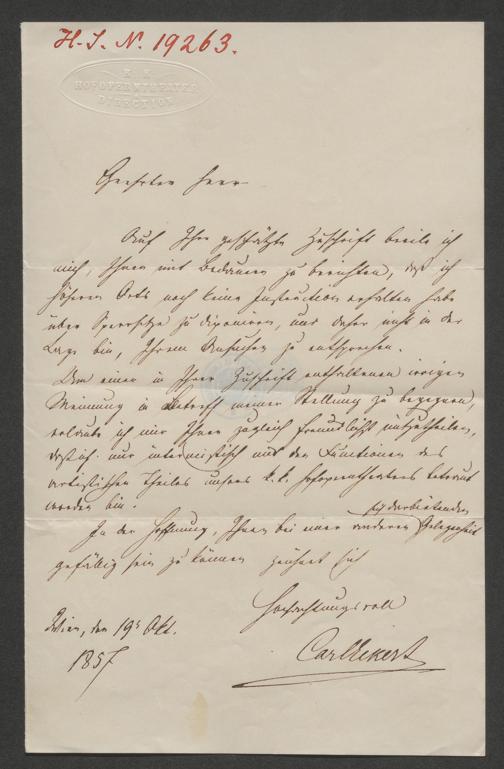 H. I. N. 19263.
K. K.
HOFOPERNTHEATER
DIRECTION
Geehrter Herr
Auf Ihre geschätzte Zuschrift beeile ich
mich, Ihnen mit Bedauern zu berichten, daß ich
höhern Orts noch keine Instruction erhalten habe
über Sperrsitze zu disponiren, und daher nicht in der
Lage bin, Ihrem Ansuchen zu entsprechen.
Um einer in Ihrer Zuschrift enthaltenen irrigen
Meinung in Betreff meiner Stellung zu begegnen,
erlaube ich mir Ihnen zugleich freundlichst mitzutheilen,
daß ich nur interimistisch mit den Functionen des
artistischen Theiles unsers k. k. Hofoperntheaters betraut
worden bin.
In der Hoffnung, Ihnen bei einer anderen sich darbietenden Gelegenheit
gefällig sein zu können zeichnet sich
Hochachtungsvoll
Wien, den 19t Okt.
1857
Carl Eckert